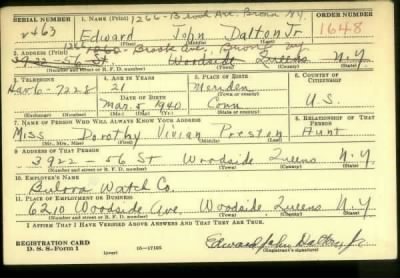 1266 - Brook Ave. Bronx N.Y.
SERIAL NUMBER 1. NAME (Print) ORDER NUMBER
2463 Edward John Dalton Jr 1648
(First) (Middle) (Last)
2. ADDRESS (Print) 1266 Brook Ave, Bronx NY
3922-56 St Woodside Queens N.Y
(Number and street or R. F. D. number) (Town) (County) (State)
3. TELEPHONE 4. AGE IN YEARS 5. PLACE OF BIRTH 6. COUNTRY OF CITIZENSHIP
Hav. 6-7228 21 Meriden U.S.
DATE OF BIRTH
Mar. 5 1940 Conn
(Exchange) (No.) (Mo.) (Day) (Yr.) (State or country)
7. NAME OF PERSON WHO WILL ALWAYS KNOW YOUR ADDRESS 8. RELATIONSHIP OF THAT PERSON
Miss Dorothy Vivian Preston Aunt
(Mr., Mrs., Miss) (First) (Middle) (Last)
9. ADDRESS OF THAT PERSON
3922 - 56 St Woodside Queens N.Y.
(Number and street or R. F. D. number) (Town) (County) (State)
10. EMPLOYER'S NAME
Bulova Watch Co.
11. PLACE OF EMPLOYMENT OR BUSINESS
6210 Woodside Ave. Woodside Queens N.Y
(Number and street or R. F. D. number) (Town) (County) (State)
I AFFIRM THAT I HAVE VERIFIED ABOVE ANSWERS AND THAT THEY ARE TRUE.
REGISTRATION CARD
D. S. S. Form 1 (over) 16-17105 Edward John Dalton Jr.